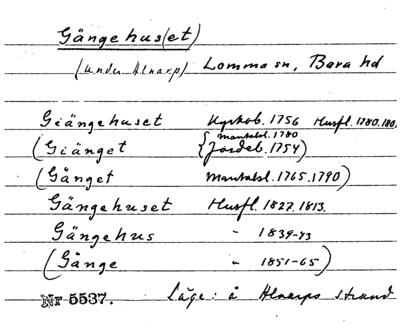 Gängehus(et)
(under Alnarp) Lomma sn, Bara hd
Giängehuset Kyrkob. 1756 Husfl. 1780.180.
(Giänget { mantalsl. 1780
Jordeb. 1754)
(Gänget Mantalsl. 1765.1790)
Gängehuset Husfl. 1827.1813.
Gängehus " 1839-43
(Gänge " 1851-65)
Nr 5537. Läge: å Alnarps strand